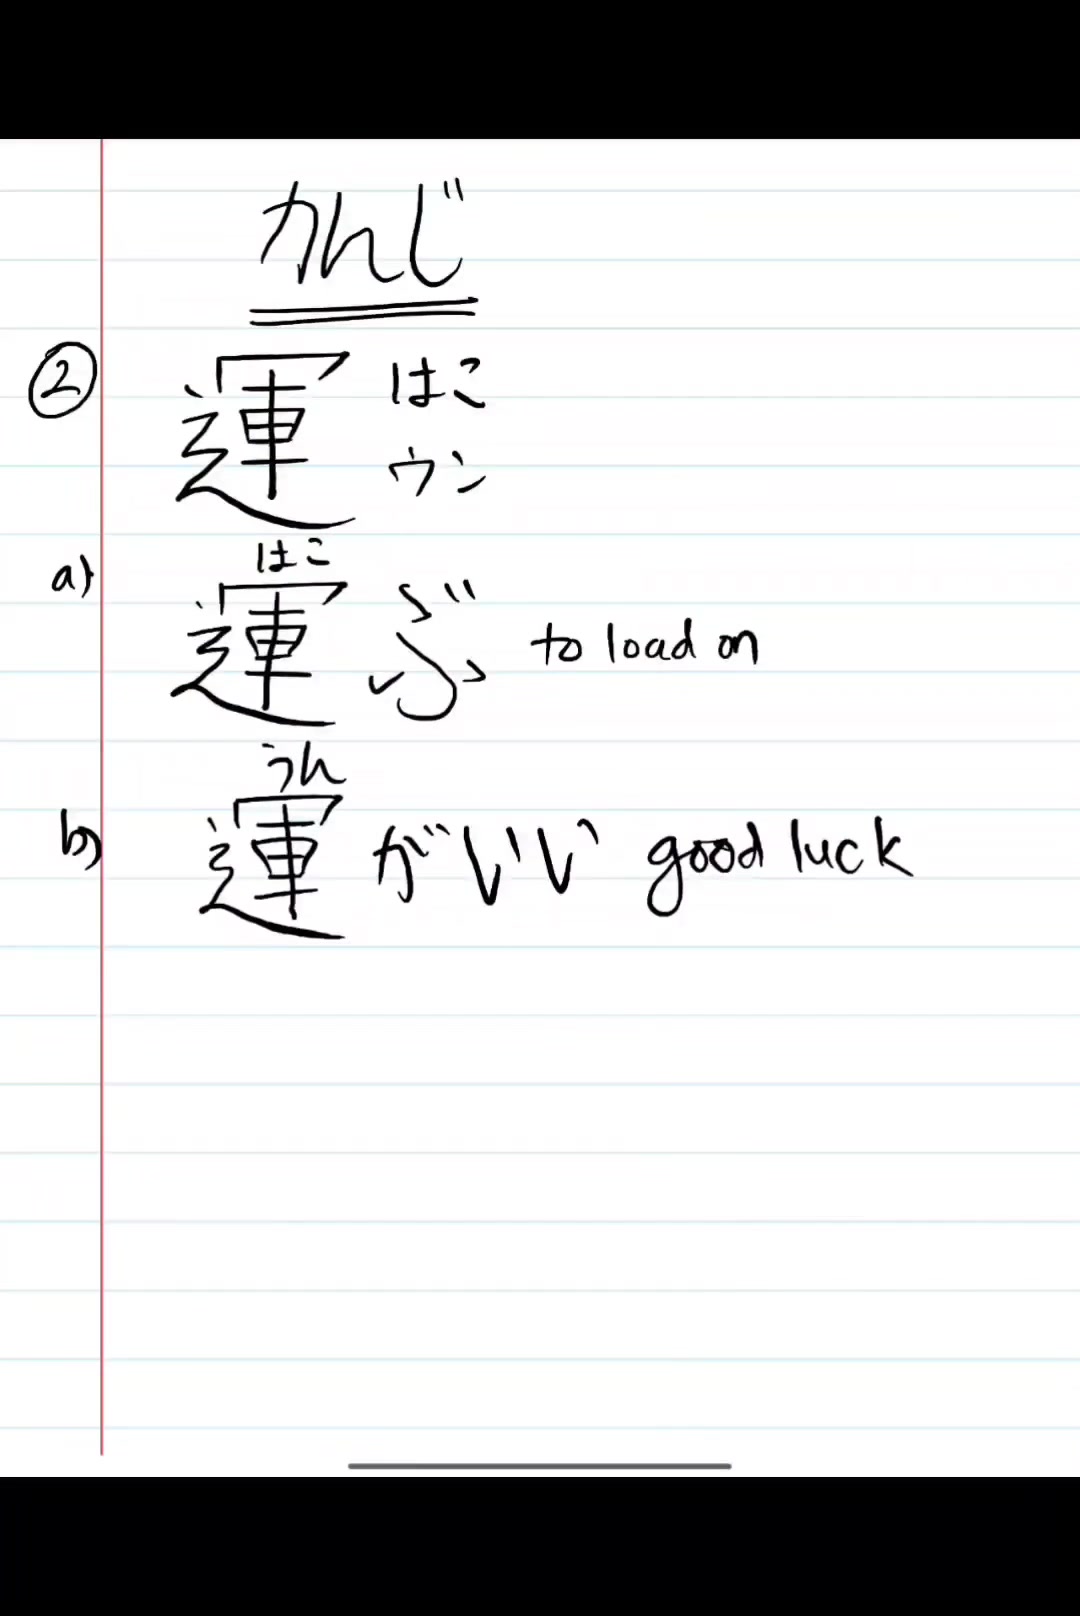 かんじ
② 運 はこ
ウン
はこ
a) 運ぶ to load on
うん
b) 運がいい good luck